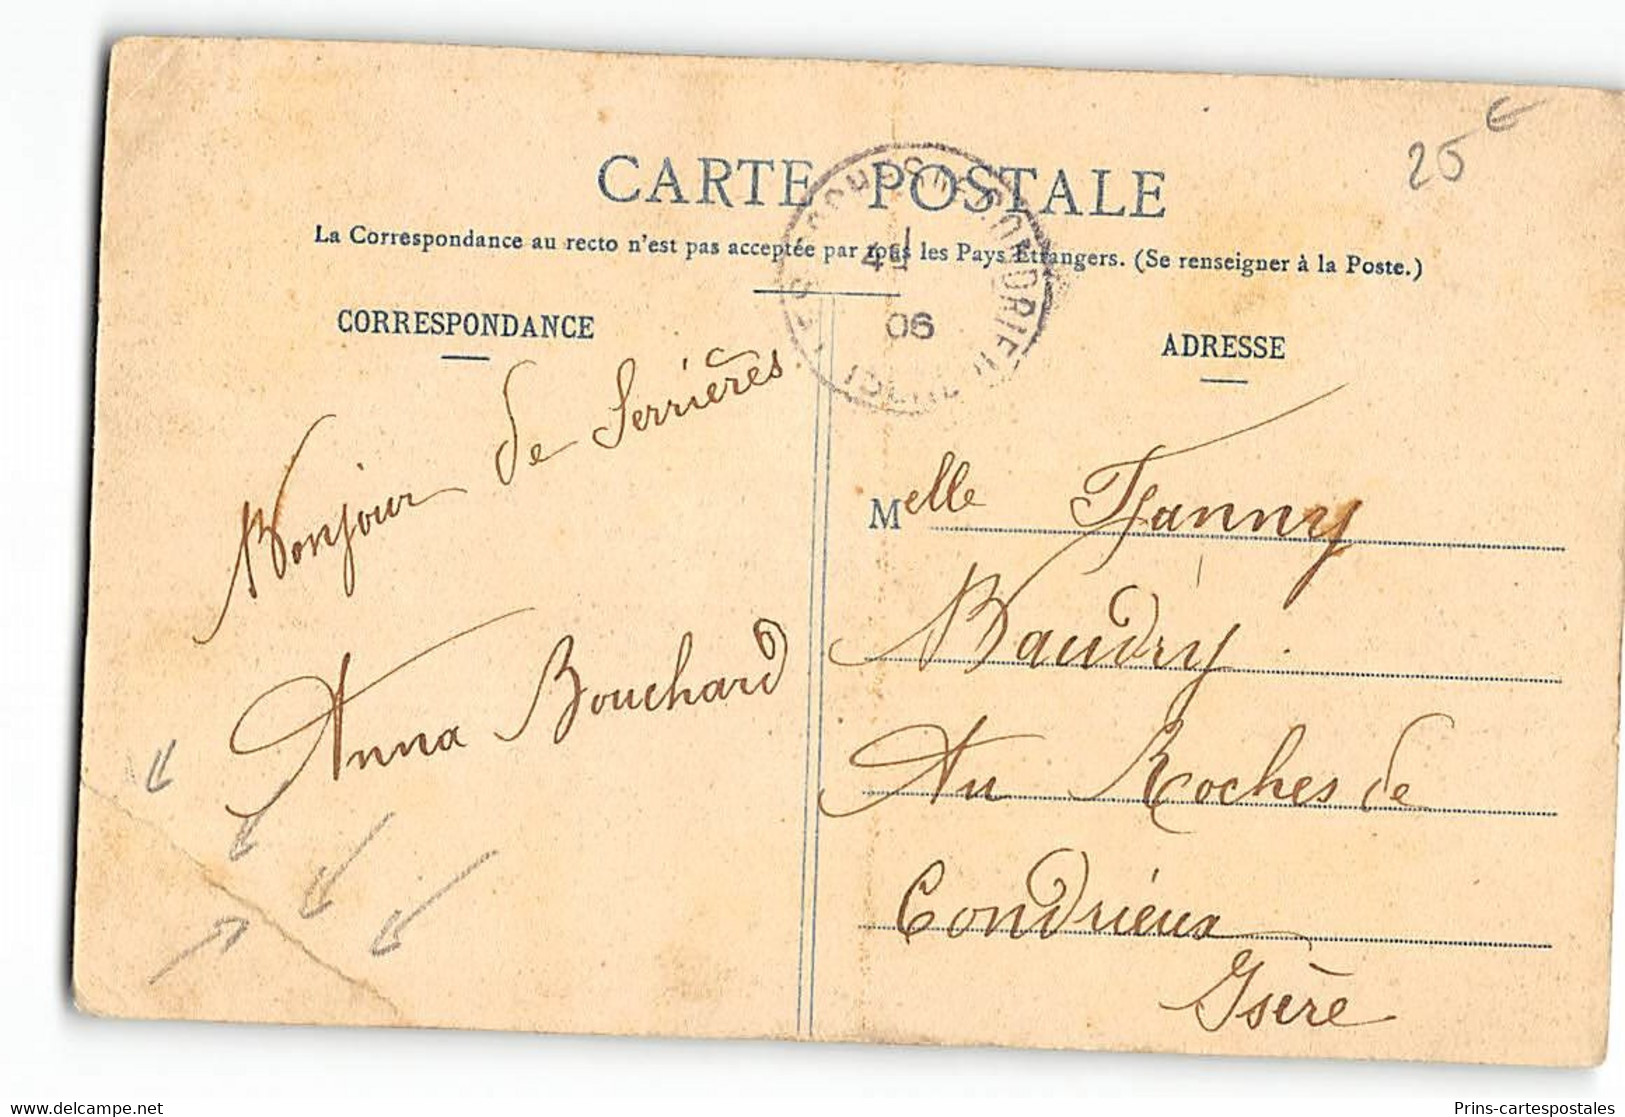 25 €
CARTE POSTALE
La Correspondance au recto n'est pas acceptée par tous les Pays Etrangers. (Se renseigner à la Poste.)
LES ROCHES-DE-CONDRIEU
4
06
ISÈRE
CORRESPONDANCE
Bonjour de Serrières
Anna Bouchard
ADRESSE
Melle Fanny
Baudry
Au Roches de
Condrieux
Isère
www.delcampe.net
Prins-cartespostales